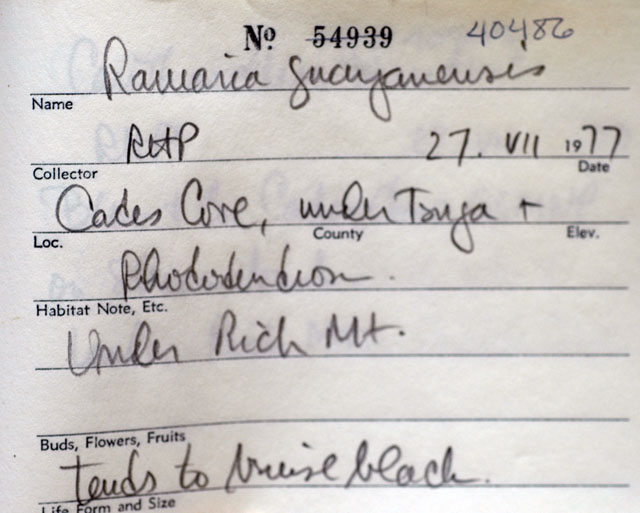 No 54939 40486
Ramaria guayanensis
Name
RHP 27. VII 1977
Collector Date
Cades Cove, under Tsuga +
Loc. County Elev.
Rhododendron.
Habitat Note, Etc.
Under Rich Mt.
Buds, Flowers, Fruits
tends to bruise black.
Life Form and Size